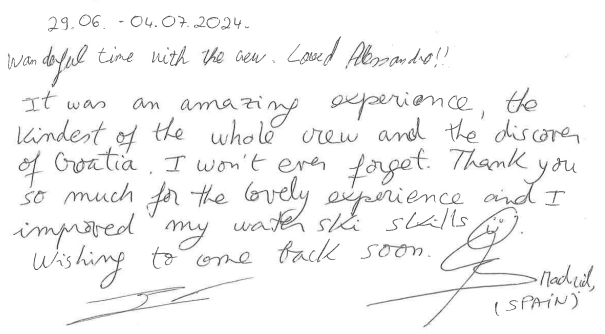 29.06. - 04.07.2024.
Wanderful time with the crew. Loved Alessandro!!
It was an amazing experience, the
kindest of the whole crew and the discover
of Croatia, I won't ever forget. Thank you
so much for the lovely experience and I
improved my water ski skills
Wishing to come back soon.
Madrid,
(SPAIN)